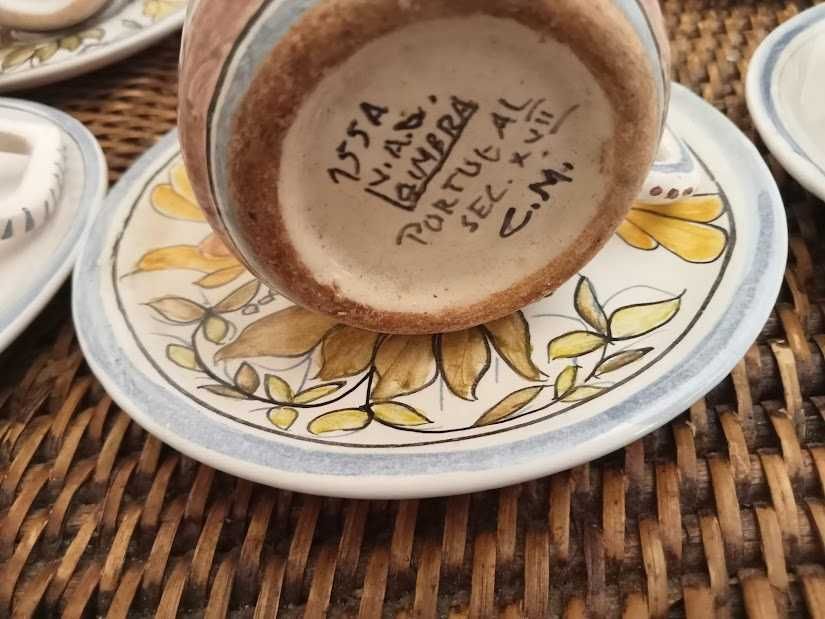 155A
V.A.D.
COIMBRA
PORTUGAL
SEC. XVII
C.M.